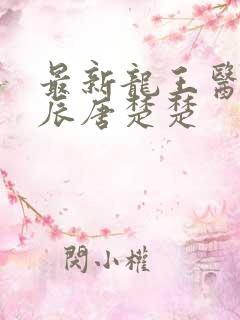 最新龍王醫
辰唐楚楚
閃小權